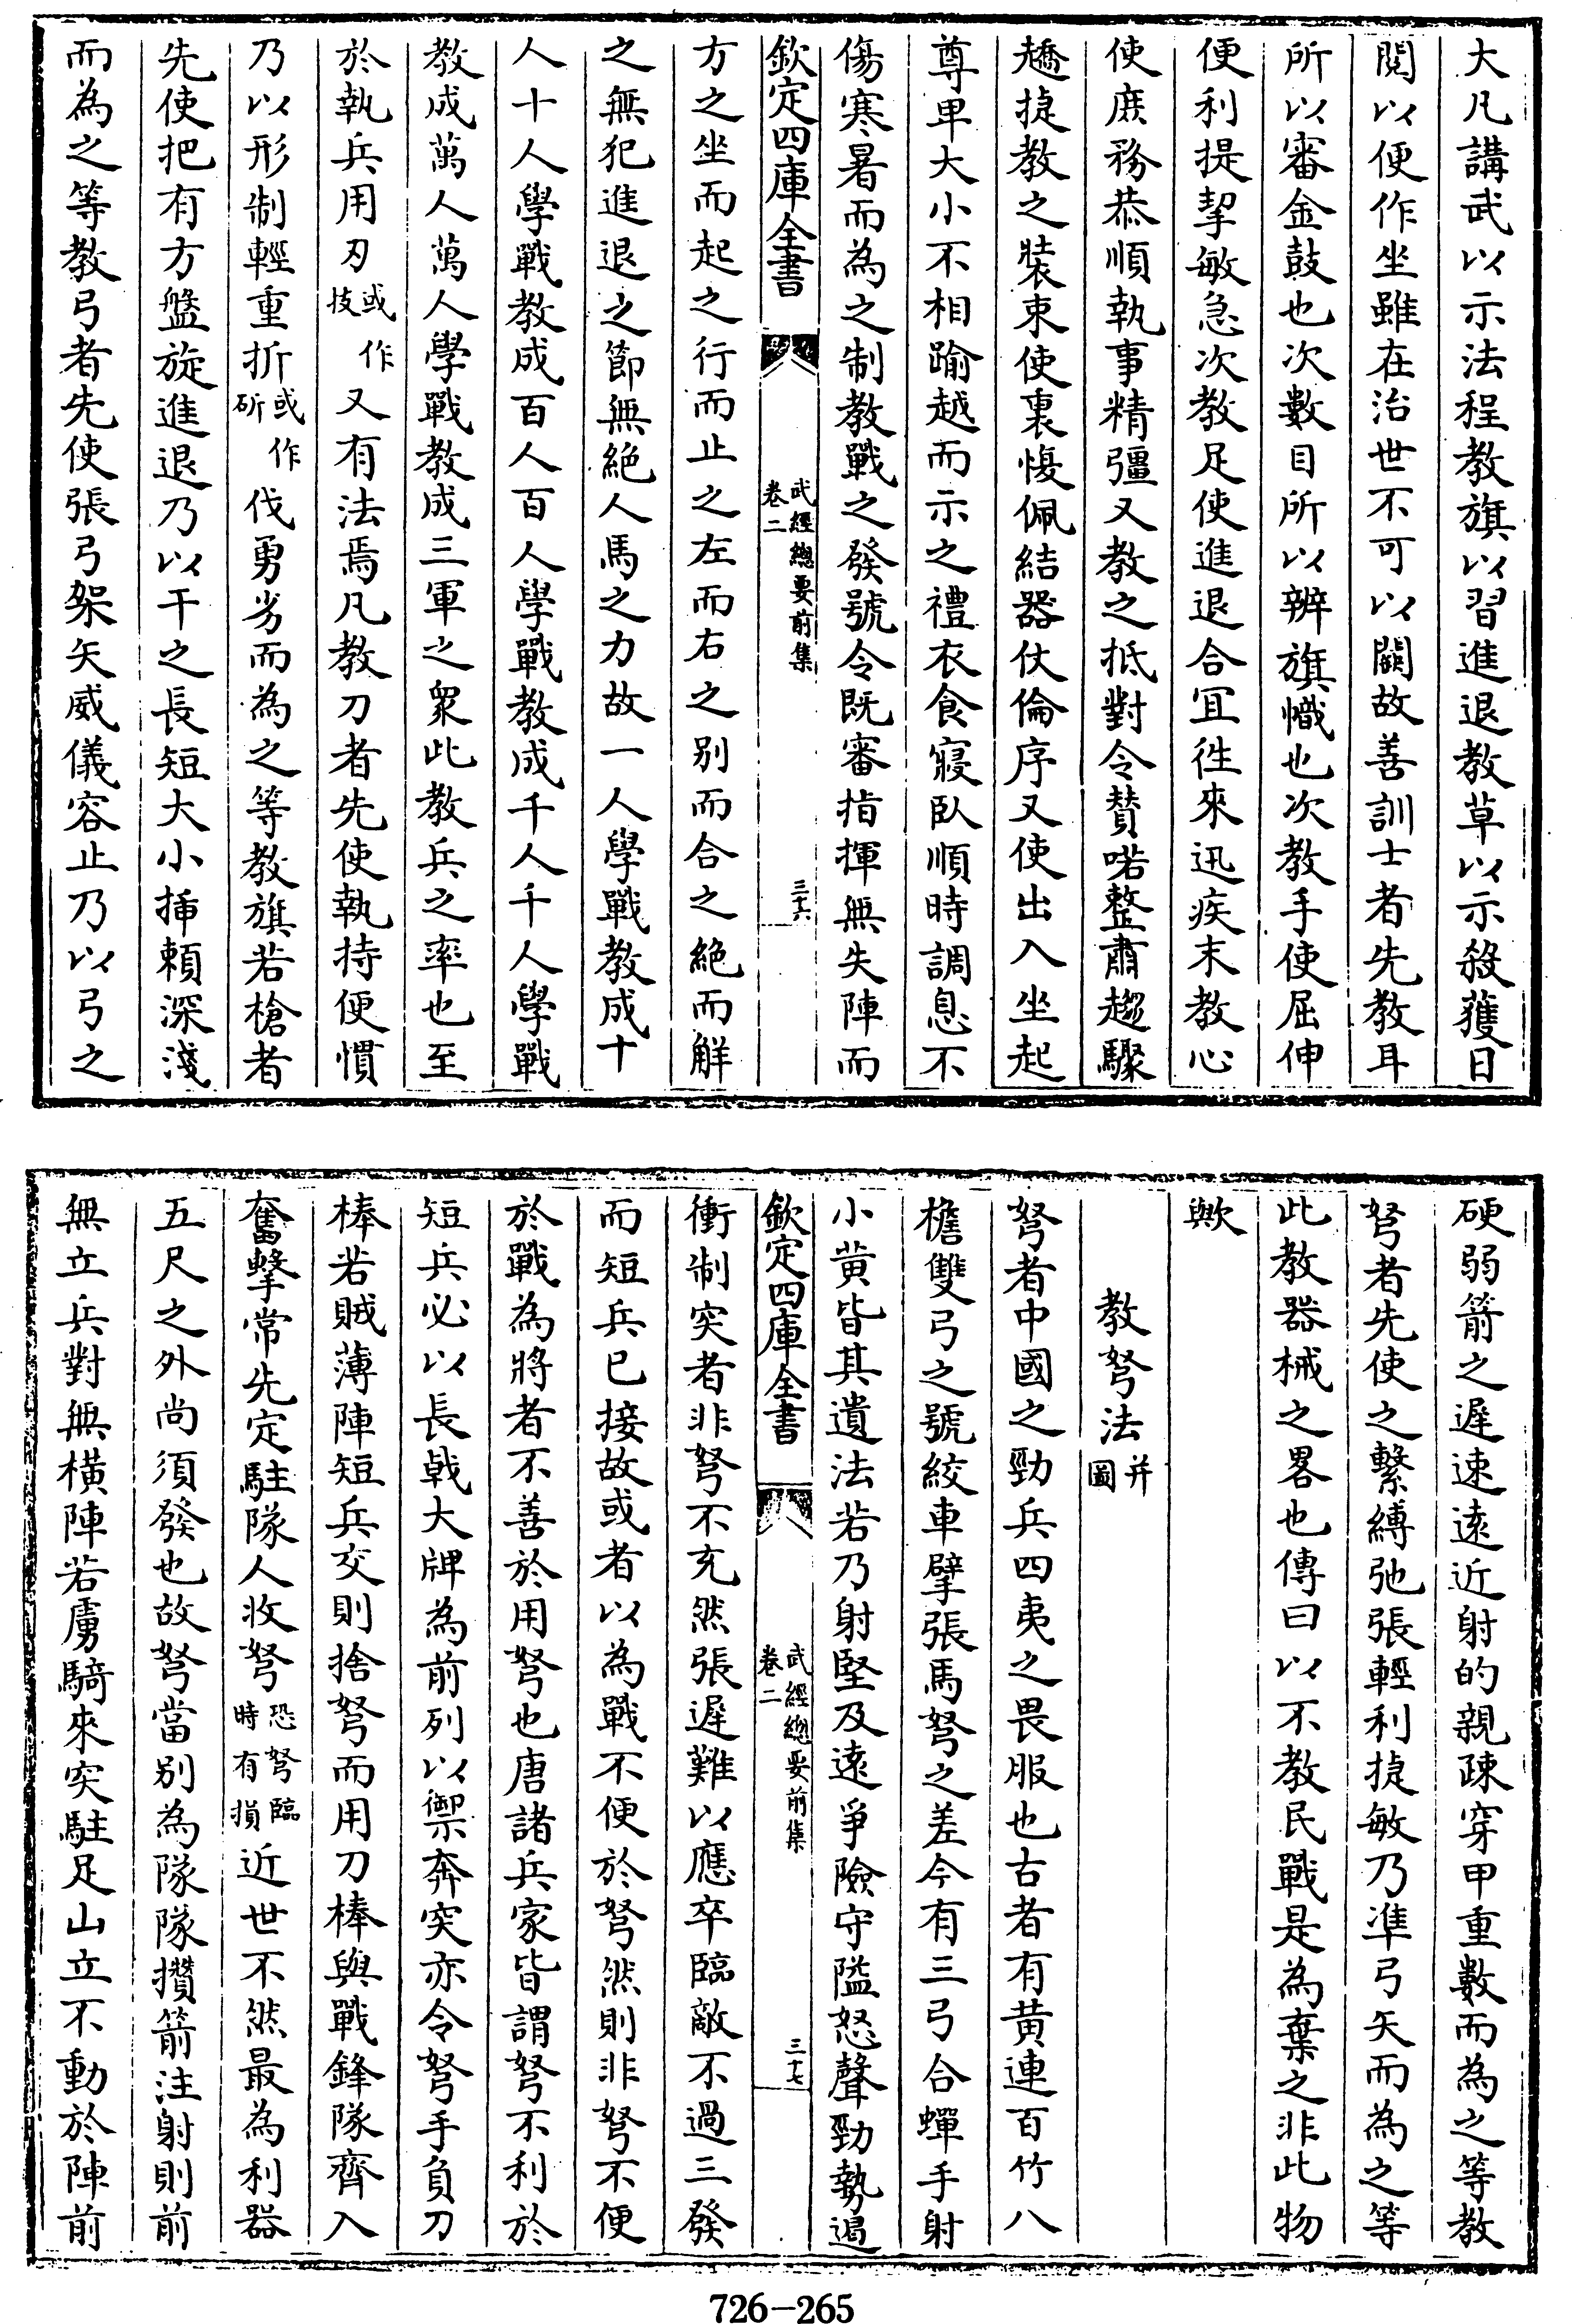 大凡講武以示法程教旗以習進退教草以示殺獲日
閱以便作坐雖在治世不可以闕故善訓士者先教耳
所以審金鼓也次數目所以辨旗幟也次教手使屈伸
便利提挈敏急次教足使進退合宜徃來迅疾末教心
使庶務恭順執事精彊又教之抵對令賛喏整肅趨驟
趫捷教之裝束使裹慢佩結器仗倫序又使出入坐起
尊卑大小不相踰越而示之禮衣食寢臥順時調息不
傷寒暑而為之制教戰之發號令既審指揮無失陣而
欽定四庫全書
武經總要前集
卷二
三十六
方之坐而起之行而止之左而右之别而合之絶而觧
之無犯進退之節無絶人馬之力故一人學戰教成十
人十人學戰教成百人百人學戰教成千人千人學戰
教成萬人萬人學戰教成三軍之衆此教兵之率也至
於執兵用刃或作技又有法焉凡教刀者先使執持便慣
乃以形制輕重折或作斫伐勇劣而為之等教旗若槍者
先使把有方盤旋進退乃以干之長短大小揷頼深淺
而為之等教弓者先使張弓架矢威儀容止乃以弓之
硬弱箭之遲速遠近射的親疎穿甲重數而為之等教
弩者先使之繫縛弛張輕利捷敏乃準弓矢而為之等
此教器械之畧也傳曰以不教民戰是為棄之非此物
歟
教弩法并圖
弩者中國之勁兵四夷之畏服也古者有黄連百竹八
檐雙弓之號絞車擘張馬弩之差今有三弓合蟬手射
小黄皆其遺法若乃射堅及遠爭險守隘怒聲勁勢遏
欽定四庫全書
武經總要前集
卷二
三十七
衝制突者非弩不克然張遲難以應卒臨敵不過三發
而短兵已接故或者以為戰不便於弩然則非弩不便
於戰為將者不善於用弩也唐諸兵家皆謂弩不利於
短兵必以長戟大牌為前列以禦奔突亦令弩手負刀
棒若賊薄陣短兵交則捨弩而用刀棒與戰鋒隊齊入
奮擊常先定駐隊人收弩恐弩臨時有損近世不然最為利器
五尺之外尚須發也故弩當别為隊隊攢箭注射則前
無立兵對無橫陣若虜騎來突駐足山立不動於陣前
726-265